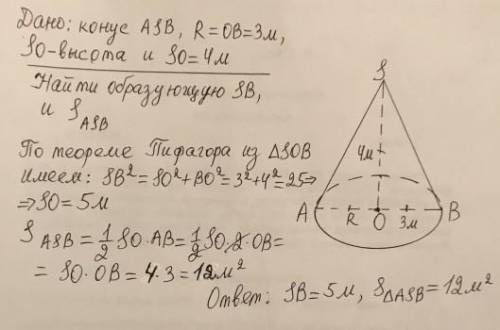 Дано: конус ASB, R=OB=3м,
SO-высота и SO=4м
Найти образующую SB,
и S_ASB
По теореме Пифагора из ΔSOB
имеем: SB²=SO²+BO²=3²+4²=25⇒
⇒SO=5м
S_ASB=1/2 SO·AB=1/2 SO·2·OB=
=SO·OB=4·3=12м²
Ответ: SB=5м, S_ΔASB=12м²
S
4м
A
R
O
3м
B